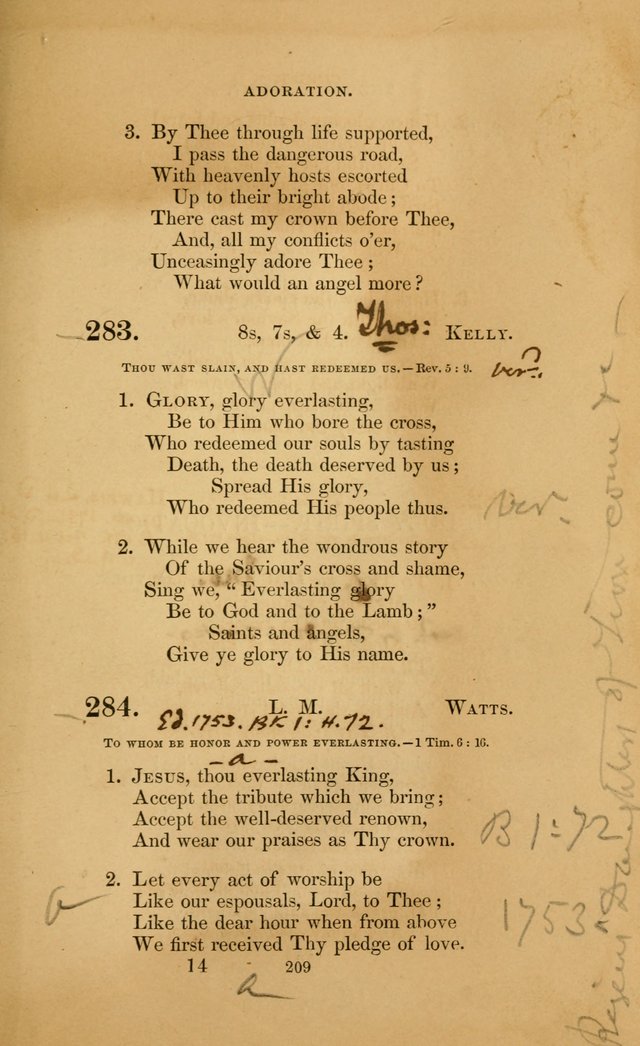 ADORATION.
3. By Thee through life supported,
I pass the dangerous road,
With heavenly hosts escorted
Up to their bright abode;
There cast my crown before Thee,
And, all my conflicts o'er,
Unceasingly adore Thee;
What would an angel more?
283. 8s, 7s, & 4. Thos: KELLY.
THOU WAST SLAIN, AND HAST REDEEMED US.—Rev. 5 : 9. ver.?
1. GLORY, glory everlasting,
Be to Him who bore the cross,
Who redeemed our souls by tasting
Death, the death deserved by us;
Spread His glory,
Who redeemed His people thus.
ver.
2. While we hear the wondrous story
Of the Saviour's cross and shame,
Sing we, “ Everlasting glory
Be to God and to the Lamb;”
Saints and angels,
Give ye glory to His name.
284. L. M. WATTS.
Ed. 1753. BK 1: H. 72.
TO WHOM BE HONOR AND POWER EVERLASTING.—1 Tim. 6 : 16.
- a -
1. JESUS, thou everlasting King,
Accept the tribute which we bring;
Accept the well-deserved renown,
And wear our praises as Thy crown.
B 1:72
2. Let every act of worship be
Like our espousals, Lord, to Thee;
Like the dear hour when from above
We first received Thy pledge of love.
1753.
14 209
a
Daughters of Zion come